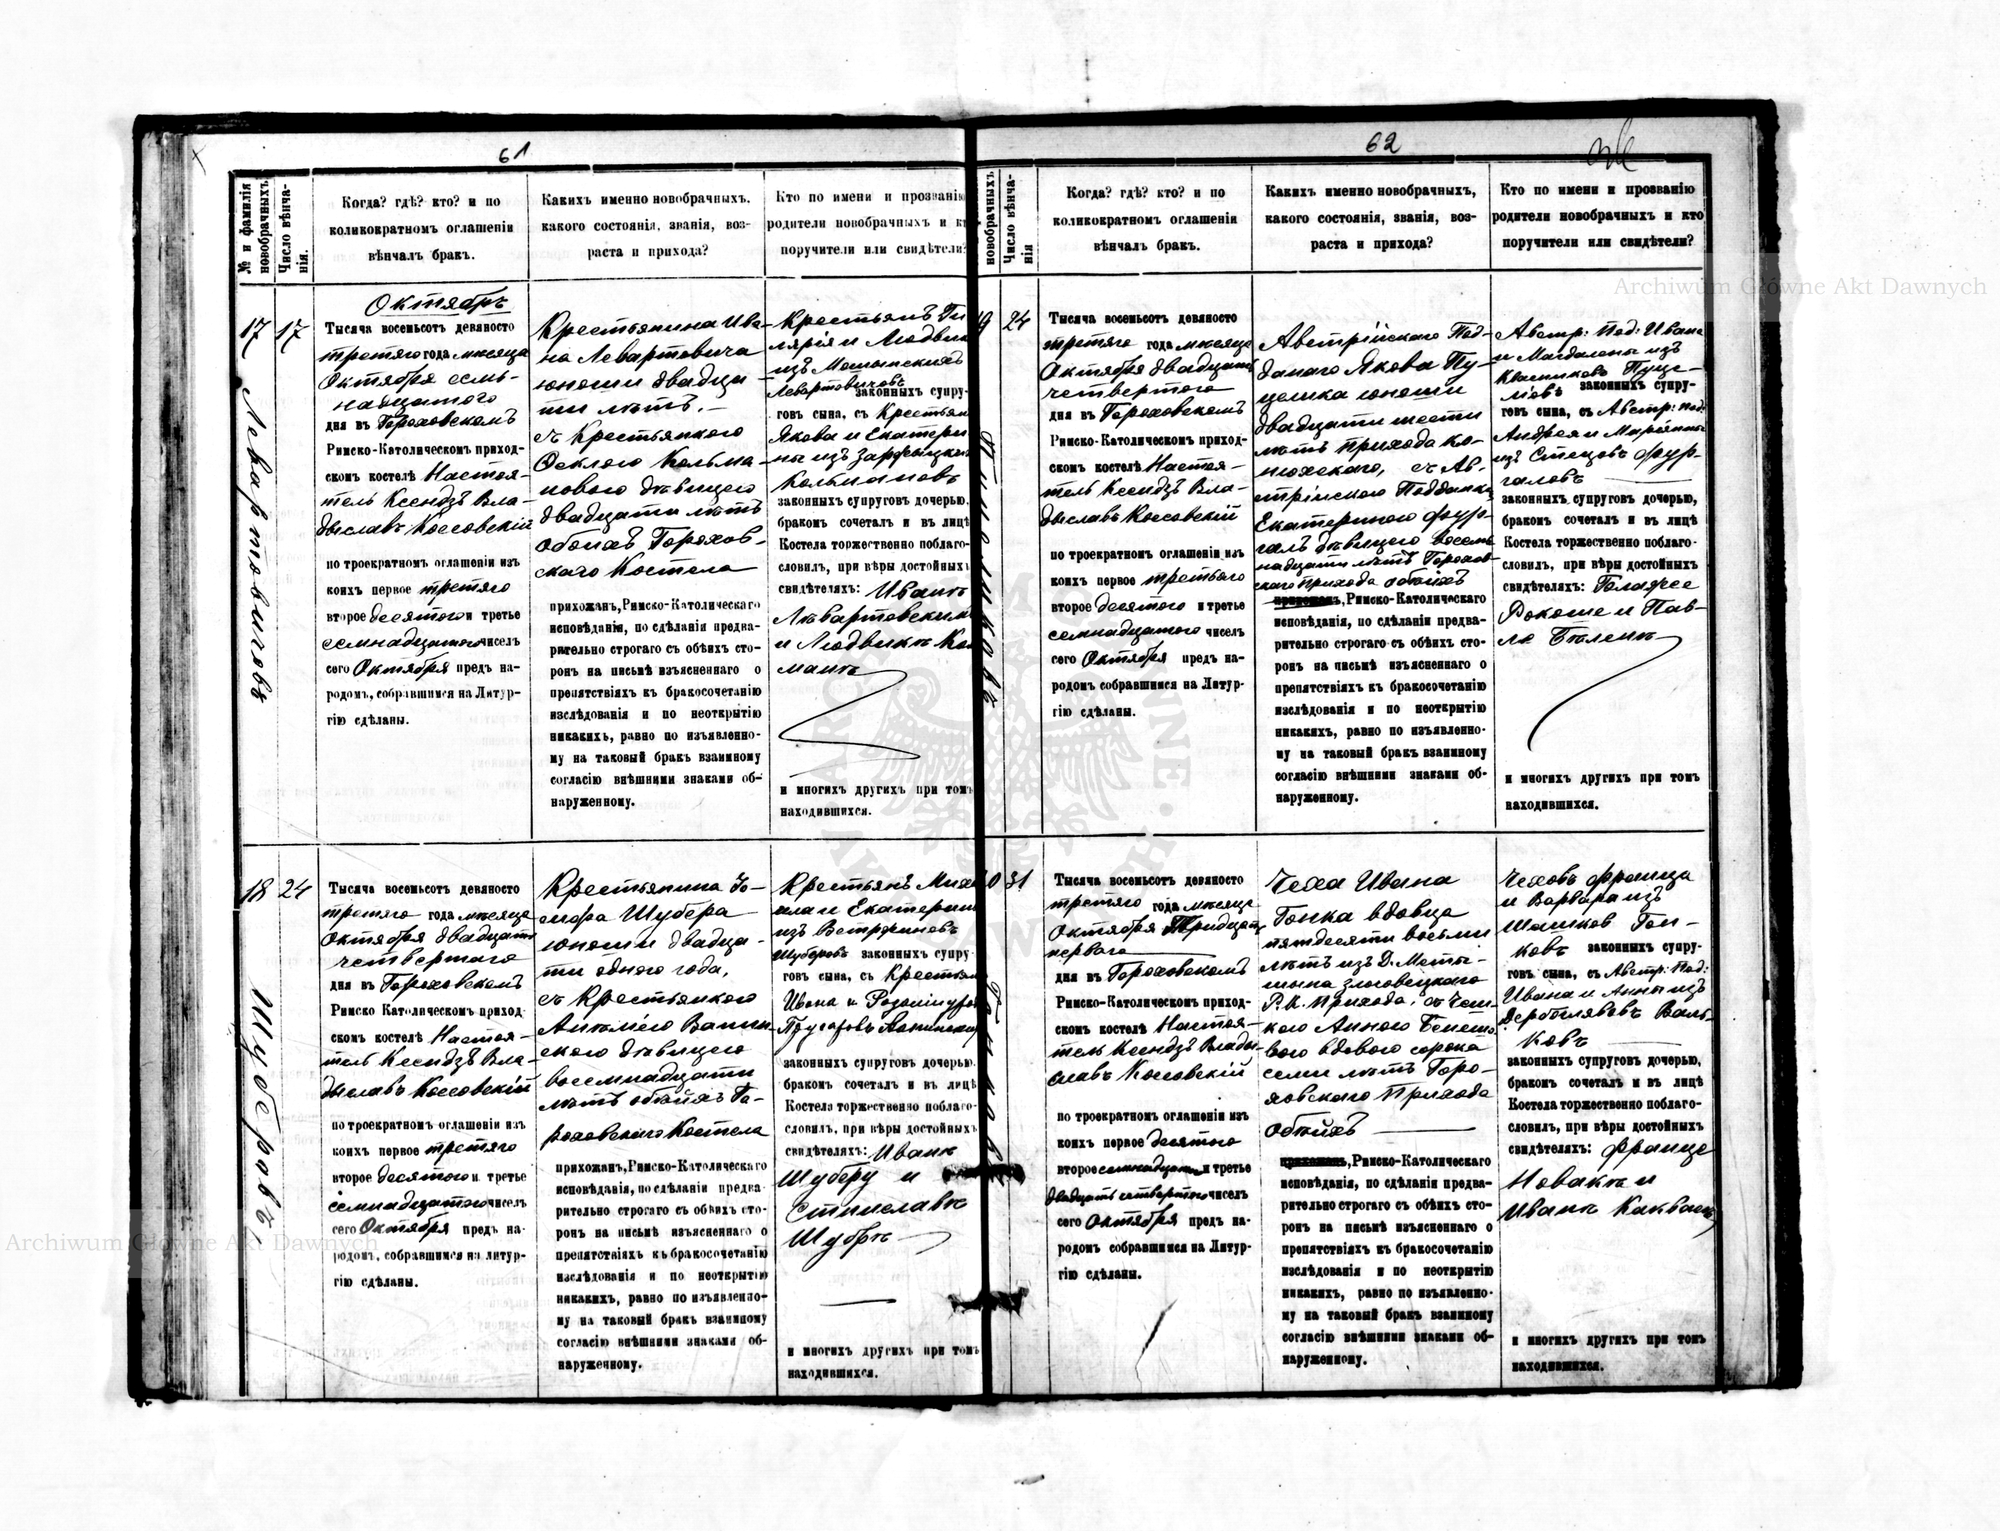 61
№ и фамилія новобрачныхъ
Число вѣнча-
нія.
Когда? гдѣ? кто? и по
коликократномъ оглашеніи
вѣнчалъ бракъ.
Какихъ именно новобрачныхъ,
какого состоянія, званія, воз-
раста и прихода?
Кто по имени и прозванію
родители новобрачныхъ и кто
поручители или свидѣтели?
17
17
Октябрь
Тысяча восемьсотъ девяносто
третяго года мѣсяца
Октября семь-
надцатого
дня въ Гороховскомъ
Римско-Католическомъ приход-
скомъ костелѣ Настоя-
тель Ксендзъ Вла-
дыславъ Коссовскій
по троекратномъ оглашеніи изъ
коихъ первое третяго
второе десятого и третье
семнадцатого чиселъ
сего Октября предъ на-
родомъ, собравшимся на Литур-
гію сдѣланы.
Крестьянина Ива-
на Левартовича
юноши двадца-
ти лѣтъ. —
съ Крестьянкою
двадцати лѣтъ
обоихъ Горохов-
скаго Костела
прихожанъ, Римско-Католическаго
исповѣданія, по сдѣланіи предва-
рительно строгаго съ обѣихъ сто-
ронъ на письмѣ изъясненнаго о
препятствіяхъ къ бракосочетанію
изслѣдованія и по неоткрытію
никакихъ, равно по изъявленно-
му на таковый бракъ взаимному
согласію внѣшними знаками об-
наруженному.
Крестьянъ Ги-
лярія и Людвики
изъ
Левартовичовъ
законныхъ супру-
говъ сына, съ Крестьян
Якова и Екатери
ны изъ
Кольмановъ
законныхъ супруговъ дочерью,
бракомъ сочеталъ и въ лицѣ
Костела торжественно поблаго-
словилъ, при вѣры достойныхъ
свидѣтеляхъ: Иванъ
и Людвикъ
и многихъ другихъ при томъ
находившихся.
Левартовичовъ
18
24
Тысяча восемьсотъ девяносто
третяго года мѣсяца
Октября двадцать
четвертого
дня въ Гороховскомъ
Римско Католическомъ приход-
скомъ костелѣ Настоя-
тель Ксендзъ Вла-
дыславъ Коссовскій
по троекратномъ оглашеніи изъ
коихъ первое третяго
второе десятого и третье
семнадцатого чиселъ
сего Октября предъ на-
родомъ, собравшимся на литур-
гію сдѣланы.
Крестьянина Іо-
сифа Шубера
юноши двадца-
ти одного года,
съ Крестьянкою
дѣвицею
восемнадцати
лѣтъ обоихъ Го-
роховскаго Костела
прихожанъ, Римско-Католическаго
исповѣданія, по сдѣланіи предва
рительно строгаго съ обѣихъ сто-
ронъ на письмѣ изъясненнаго о
препятствіяхъ къ бракосочетанію
изслѣдованія и по неоткрытію
никакихъ, равно по изъявленно-
му на таковый бракъ взаимному
согласію внѣшними знаками об-
наруженному.
Крестьянъ Миха
ила и Екатерины
изъ
Шуберовъ законныхъ супру
говъ сына, съ Крестьян
Ивана и
законныхъ супруговъ дочерью.
бракомъ сочеталъ и въ лицѣ
Костела торжественно поблаго-
словилъ, при вѣры достойныхъ
свидѣтеляхъ: Иванъ
Шуберу и
Станиславъ
Шуберъ
и многихъ другихъ при томъ
находившихся.
Шуберовъ
62
новобрачныхъ
Число вѣнча-
нія
Когда? гдѣ? кто? и по
коликократномъ оглашеніи
вѣнчалъ бракъ.
Какихъ именно новобрачныхъ,
какого состоянія, званія, воз-
раста и прихода?
Кто по имени и прозванію
родители новобрачныхъ и кто
поручители или свидѣтели?
9
24
Тысяча восемьсотъ девяносто
третяго года мѣсяца
Октября двадцать
четвертого
дня въ Гороховскомъ
Римско-Католическомъ приход-
скомъ костелѣ Настоя-
тель Ксендзъ Вла-
дыславъ Коссовскій
по троекратномъ оглашеніи изъ
коихъ первое третьяго
второе десятого и третье
семнадцатого чиселъ
сего Октября предъ на-
родомъ собравшимся на Литур-
гію сдѣланы.
Австрійского Под-
даного Якова Пу-
целика юноши
двадцати шести
лѣтъ прихода
съ Ав-
стрійскою Подданною
Екатериною Фур-
галъ дѣвицею восем-
надцати лѣтъ Горохов-
скаго прихода обоихъ
прихожанъ, Римско-Католическаго
исповѣданія, по сдѣланіи предва-
рительно строгаго съ обѣихъ сто-
ронъ на письмѣ изъясненнаго о
препятствіяхъ къ бракосочетанію
изслѣдованія и по неоткрытію
никакихъ, равно по изъявленно-
му на таковый бракъ взаимному
согласію внѣшними знаками об-
наруженному.
Австр: Под: Ивана
и Магдалены изъ
законныхъ супру-
говъ сына, съ Австр: Под:
Андрея и Маріянны
изъ Стецовъ Фур-
галовъ
законныхъ супруговъ дочерью,
бракомъ сочеталъ и въ лицѣ
Костела торжественно поблаго-
словилъ, при вѣры достойныхъ
свидѣтеляхъ:
и Пав-
и многихъ другихъ при томъ
находившихся.
0
31
Тысяча восемьсотъ девяносто
третяго года мѣсяца
Октября Тридцать
первого
дня въ Гороховскомъ
Римско-Католическомъ приход-
скомъ костелѣ Настоя-
тель Ксендзъ Влады-
славъ Коссовскій
по троекратномъ оглашеніи изъ
коихъ первое десятого
второе семнадцатого и третье
двадцать четвертого чиселъ
сего Октября предъ на-
родомъ собравшимся на Литур-
гію сдѣланы.
Чеха Ивана
вдовца
пятдесяти восьми
лѣтъ изъ Д.
Р. К. Прихода, съ Чеш-
кою Анною
вдовою сорока
семи лѣтъ Горо-
ховского Прихода
обоихъ
прихожанъ, Римско-Католическаго
исповѣданія, по сдѣланіи предва-
рительно строгаго съ обѣихъ сто-
ронъ на письмѣ изъясненнаго о
препятствіяхъ къ бракосочетанію
изслѣдованія и по неоткрытію
никакихъ, равно по изъявленно-
му на таковый бракъ взаимному
согласію внѣшними знаками об-
наруженному.
Чеховъ Франца
и Варвары изъ
законныхъ супру-
говъ сына, съ Австр: Под:
Ивана и Анны изъ
законныхъ супруговъ дочерью,
бракомъ сочеталъ и въ лицѣ
Костела торжественно поблаго-
словилъ, при вѣры достойныхъ
свидѣтеляхъ: Франце
Новакъ и
Иванъ
и многихъ другихъ при томъ
находившихся.
Archiwum Główne Akt Dawnych
Archiwum Główne Akt Dawnych